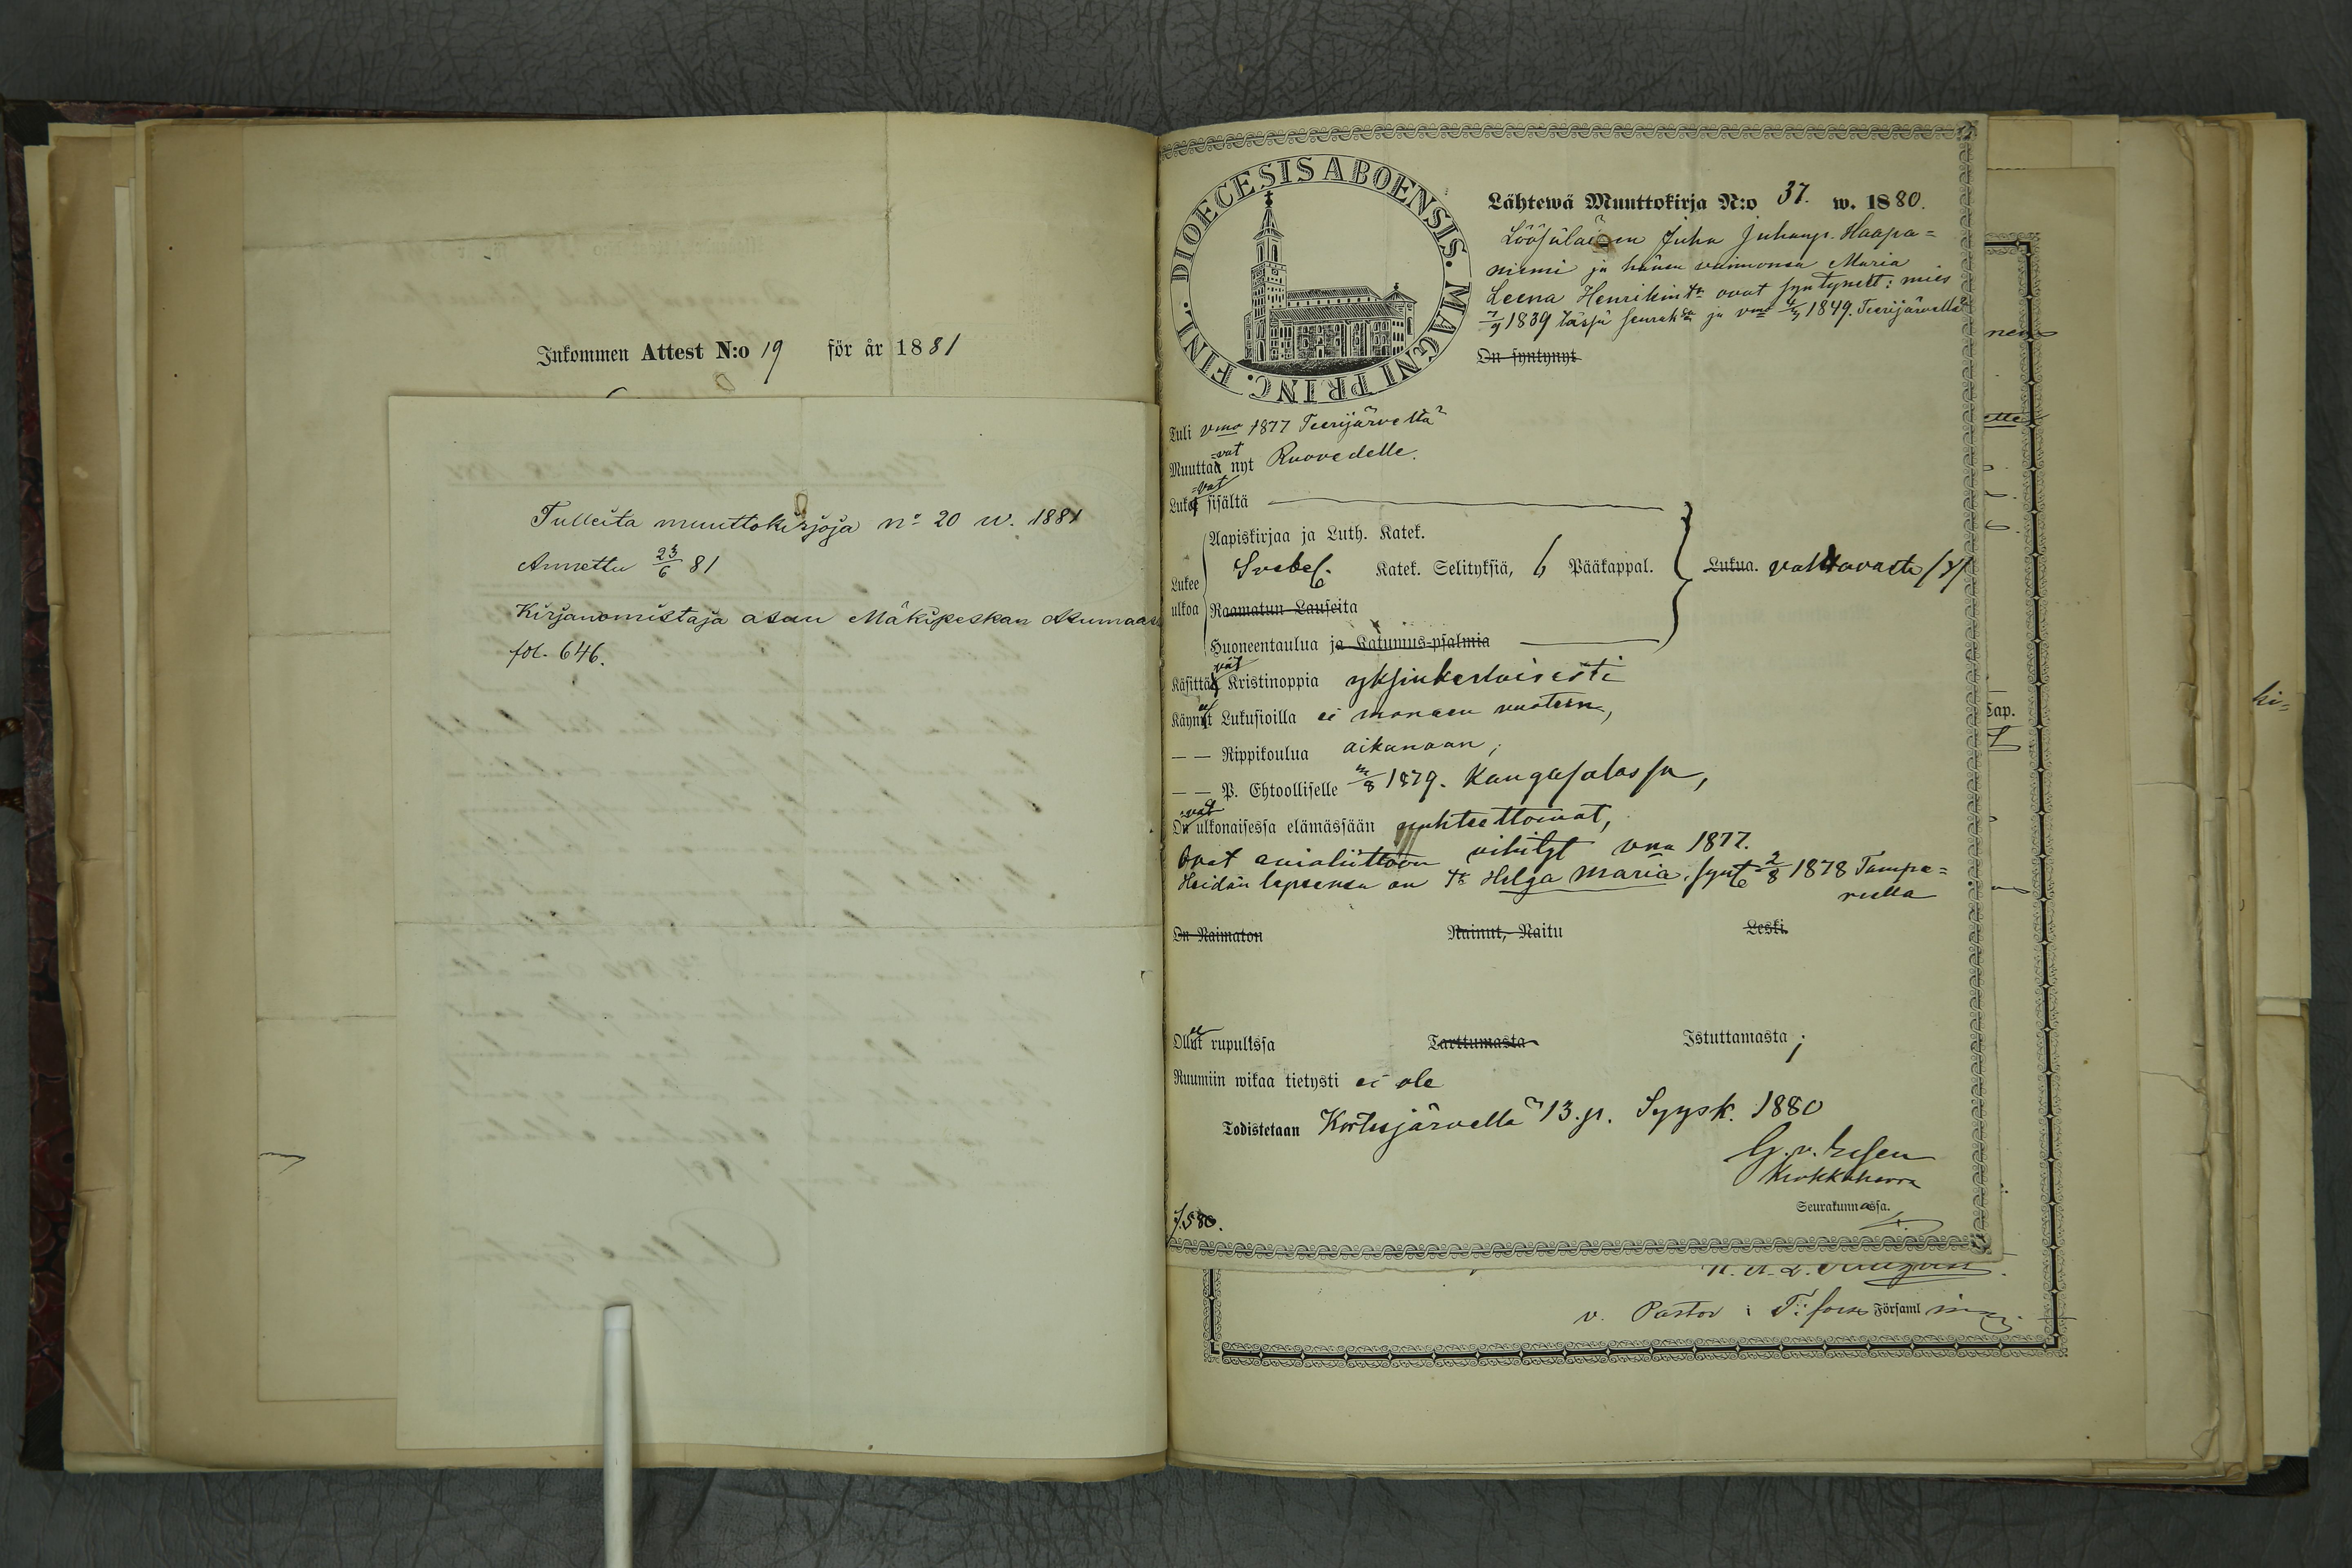 Inkommen Attest N:o 19 för år 1881
Tulleita muuttokirjoja nº 20 w. 1881
Annettu 23/6 81
Kirjanomistaja asuu Mäkipeskan
fol. 646.
DIOECESIS ABOENSIS. MAGNI PRINC. FINL.
Lähtewä Muuttokirja N:o 37. w. 1880.
Löösiläinen Juha Juhanp. Haapa=
niemi ja hänen vaimonsa Maria
Leena Henrikint:r ovat syntynett: mies
1839 tässä seurak:sa ja vmo 1849. Teerijärvellä
On syntynyt
Tuli vma 1877 Teerijärveltä
Muuttaa=vat nyt Ruovedelle.
Luke=vat sisältä
Lukee ulkoa
Aapiskirjaa ja Luth. Katek.
Svebel. Katek. Selityksiä, 6 Pääkappal.
Lukua.
Raamatun Lauseita
Huoneentaulua ja Katumus-psalmia
Käsittä=vät Kristinoppia yksinkertaisesti
Käynyt Lukusioilla ei monaan vuoteen,
— — Rippikoulua aikanaan;
— — P. Ehtoolliselle 1879. Kangasalassa,
On =vat ulkonaisessa elämässään nuhteettomat,
Ovat avioliittoon vihityt vna 1877.
Heidän lapsensa on T:r Helga Maria, synt. 2/8 1878 Tampe=
reella
On Naimaton Nainut, Naitu Leski.
Ollut rupulissa Tarttumasta Istuttamasta;
Ruumiin wikaa tietysti ei ole
Todistetaan Kortesjärvellä 13. p. Syysk. 1880
G. v. Essen
Kirkkoherra
Seurakunnassa.
f. 580.
v. Pastor i Församl
nen
Cap.